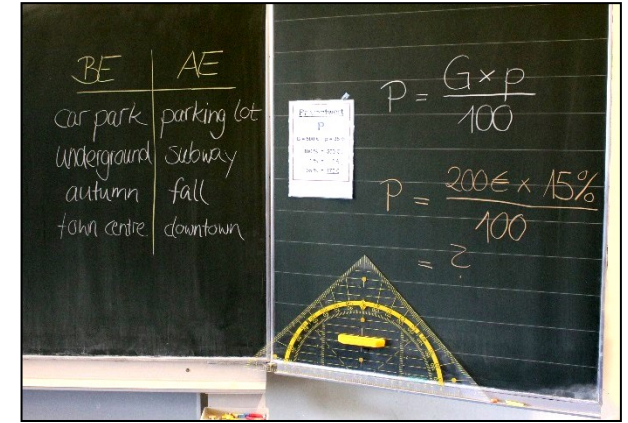 BE AE
car park parking lot
underground subway
autumn fall
town centre downtown
Prozentwert
P
P = G × p
100
P = 200€ × 15%
100
= ?